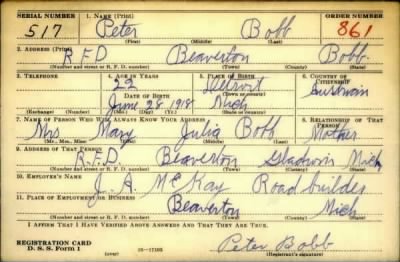 SERIAL NUMBER 1. NAME (Print) ORDER NUMBER
517 Peter Bobb 861
(First) (Middle) (Last)
2. ADDRESS (Print)
R.F.D. Beaverton Bobb.
(Number and street or R. F. D. number) (Town) (County) (State)
3. TELEPHONE 4. AGE IN YEARS 5. PLACE OF BIRTH 6. COUNTRY OF CITIZENSHIP
22 Detroit
DATE OF BIRTH (Town or county)
June 28 1918 Mich
(Exchange) (Number) (Mo.) (Day) (Yr.) (State or country)
7. NAME OF PERSON WHO WILL ALWAYS KNOW YOUR ADDRESS 8. RELATIONSHIP OF THAT PERSON
Mrs Mary Julia Bobb Mother
(Mr., Mrs., Miss) (First) (Middle) (Last)
9. ADDRESS OF THAT PERSON
R.F.D. Beaverton Gladwin Mich
(Number and street or R. F. D. number) (Town) (County) (State)
10. EMPLOYER'S NAME
J. A. McKay Road builder
11. PLACE OF EMPLOYMENT OR BUSINESS
Beaverton Mich
(Number and street or R. F. D. number) (Town) (County) (State)
I AFFIRM THAT I HAVE VERIFIED ABOVE ANSWERS AND THAT THEY ARE TRUE.
REGISTRATION CARD
D. S. S. Form 1 (over) 16—17105 Peter Bobb
(Registrant's signature)